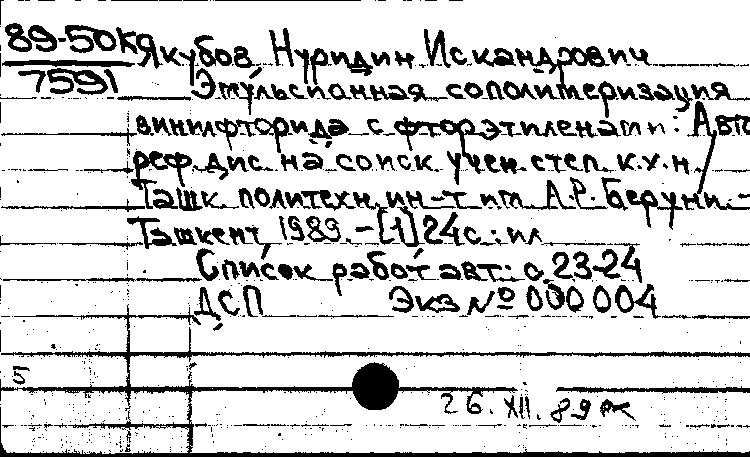 89-50К Якубов Нуридин Искандрович
7591
Эмульсионная сополимеризация
винилфторида с фторэтиленами: Авто
реф. дис. на соиск. учен. степ. к.х.н.
Ташк. политехн. ин-т им. А.Р. Беруни. -
Ташкент, 1989. - [1] 24 с.: ил
Список работ авт.: с. 23-24
ДСП Экз № 000 004
5
26. XII. 89